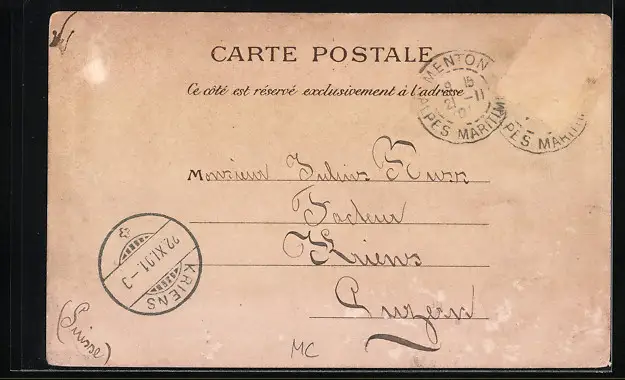 CARTE POSTALE
Ce côté est réservé exclusivement à l'adresse
MENTON
15
21 -11
ALPES MARITIM
PES MARITIM
Monsieur Julius Kurz
Facteur
Kriens
Luzern
22.XI.01.-3
KRIENS
(Suisse)
MC